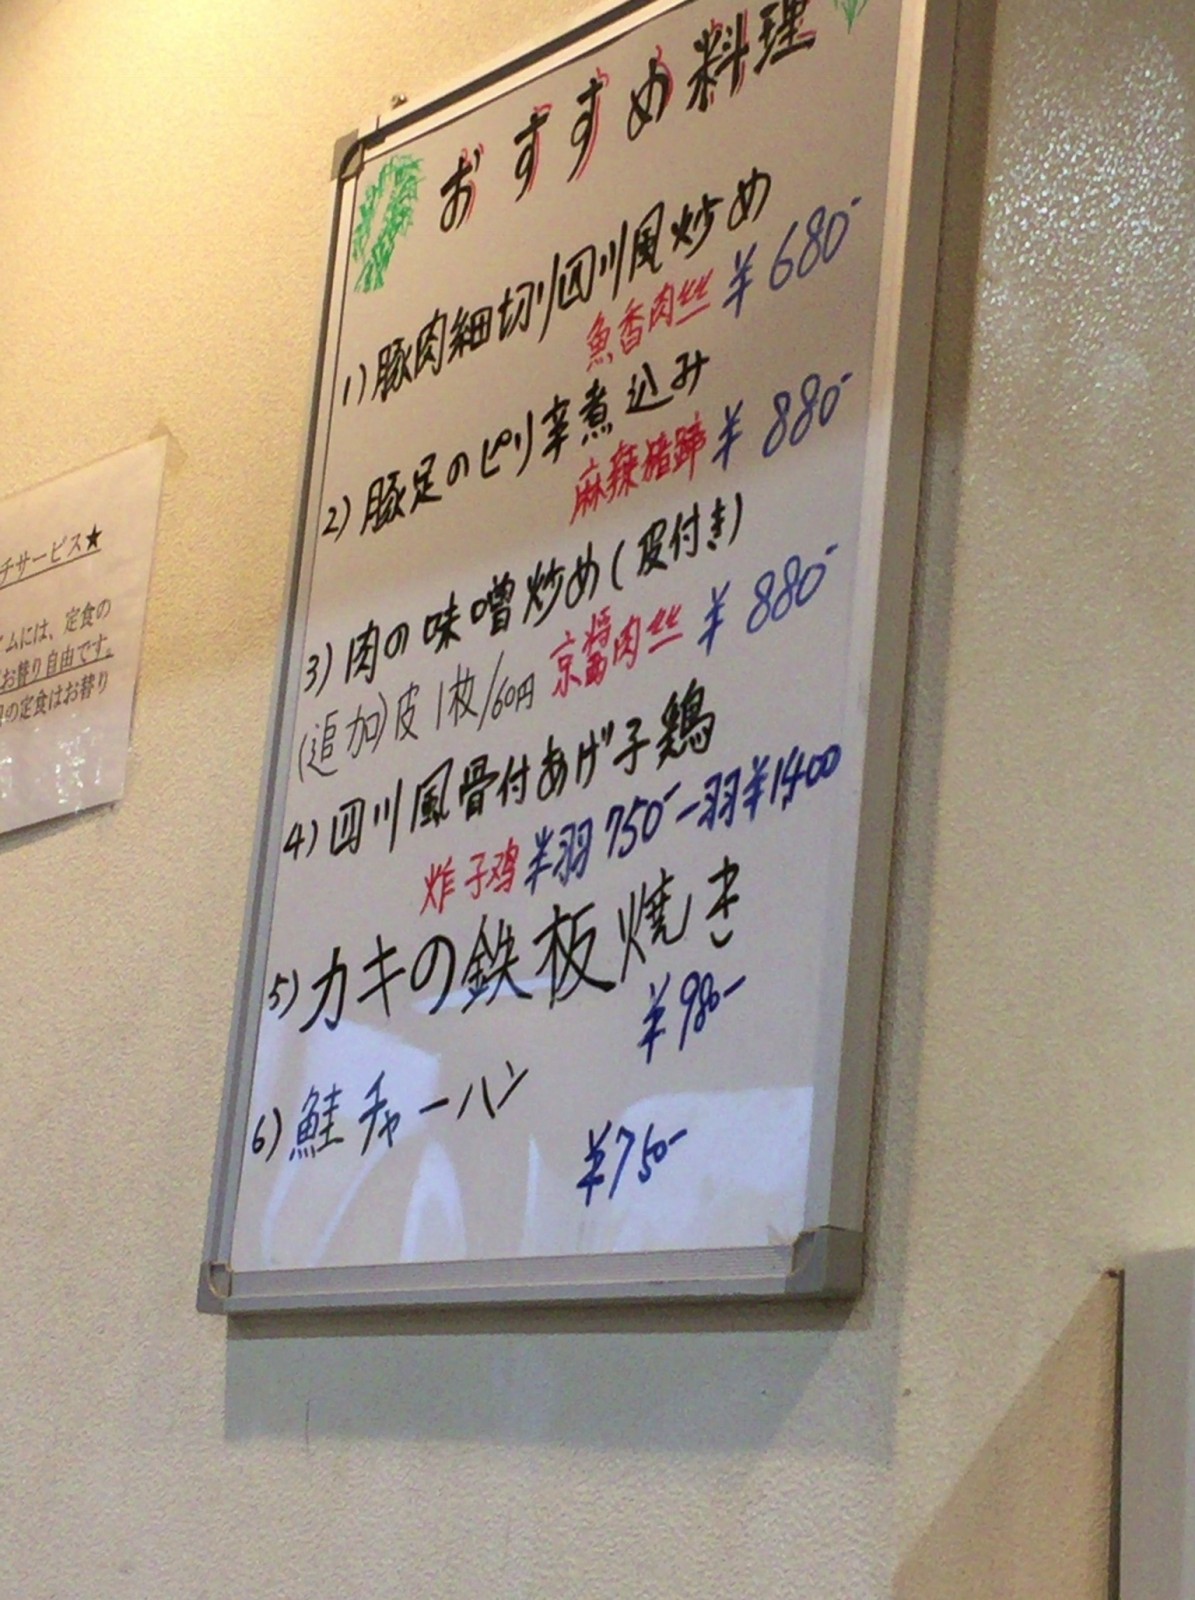 おすすめ料理
1) 豚肉細切り四川風炒め
魚香肉丝 ¥680-
2) 豚足のピリ辛煮込み
麻辣猪蹄 ¥880-
3) 肉の味噌炒め(皮付き)
京醤肉丝 ¥880-
(追加)皮1枚/60円
4) 四川風骨付あげ子鶏
炸子鸡 半羽750- 一羽¥1400
5) カキの鉄板焼き
¥980-
6) 鮭チャーハン
¥750-
チサービス★
イムには、定食の
お替り自由です。
の定食はお替り